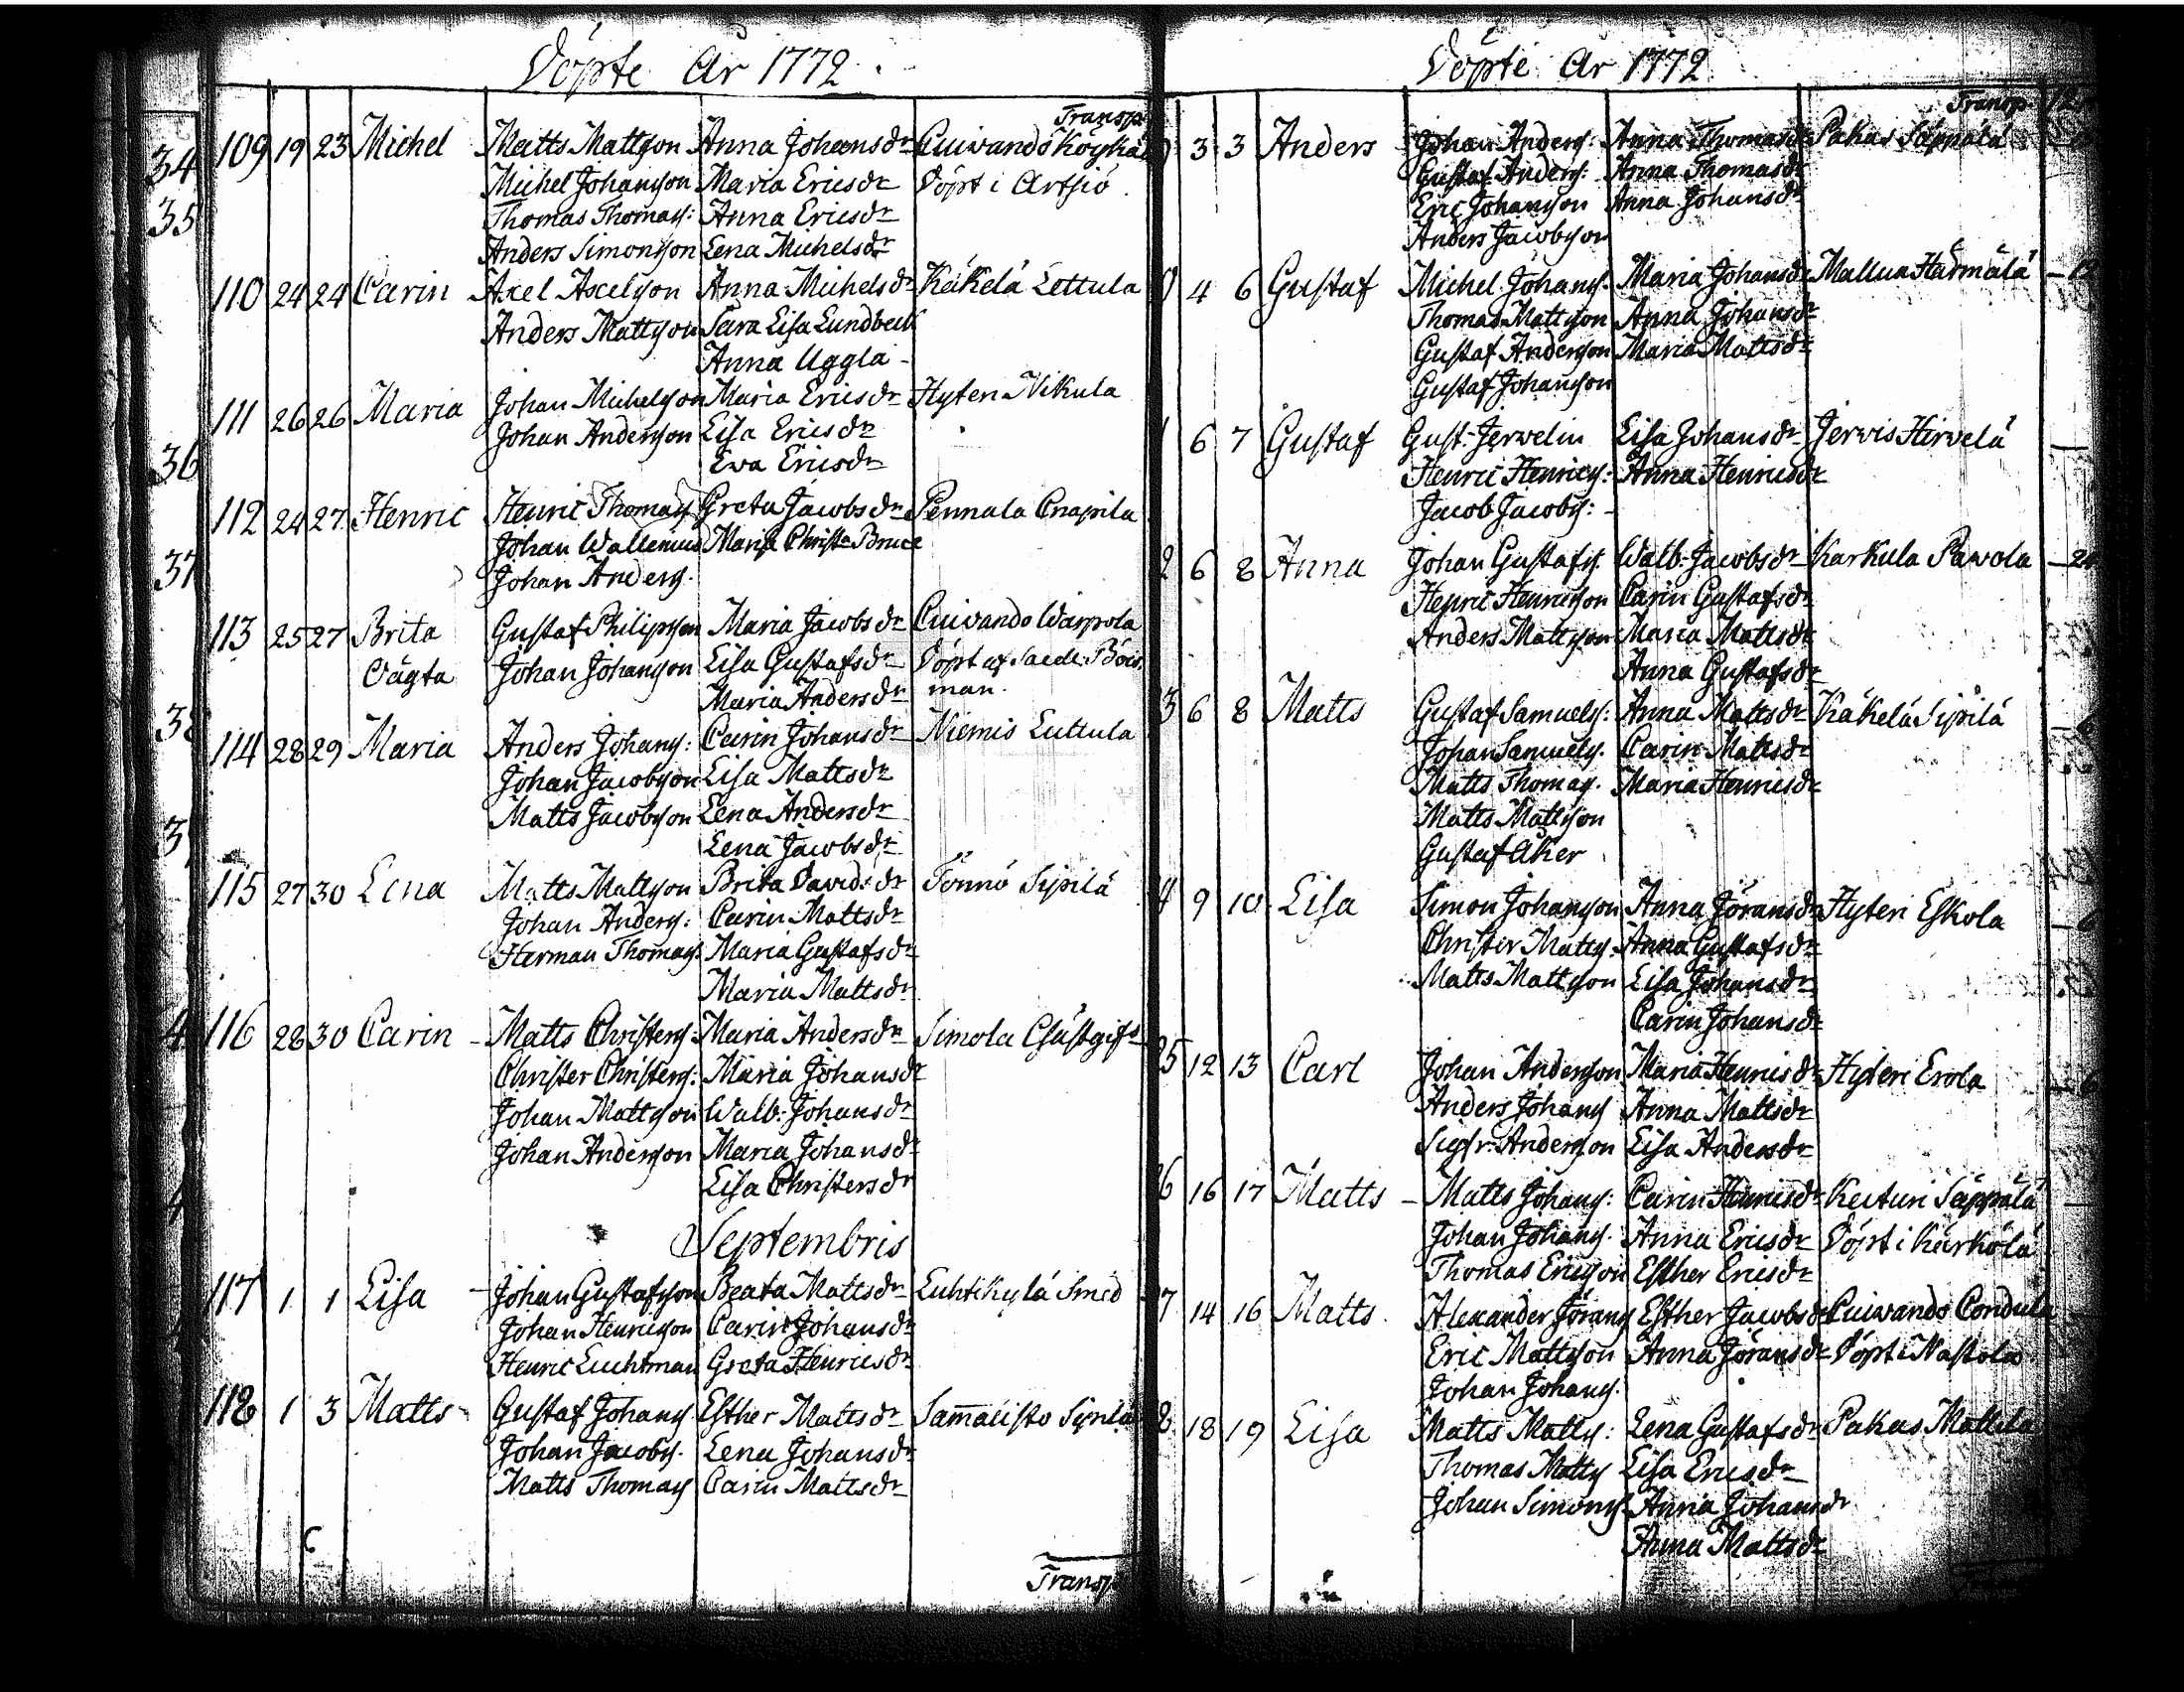 Döpte År 1772
Transp.
109 19 23 Michel Matts Mattsson Anna Johansdr Cuivando Köykä
Michel Johansson Maria Ericsdr Döpt i Artsiö
Thomas Thomass: Anna Ericsdr
Anders Simonsson Lena Michelsdr
110 24 24 Carin Axel Axelsson Anna Michelsdr Käkelä Lettula
Anders Mattsson Sara Lisa Lundbeck
Anna Uggla
111 26 26 Maria Johan Michelsson Maria Ericsdr Hyteri Nikula
Johan Andersson Lisa Ericsdr
Ewa Ericsdr
112 24 27 Henric Henric Thomass Greta Jacobsdr Pennala Knapila
Johan Wallenius Maria Christa Bruce
Johan Anderss.
113 25 27 Brita Gustaf Philipsson Maria Jacobsdr Cuivando Warpola
Oägta Johan Johansson Lisa Gustafsdr Döpt af Sacell: Böis
Maria Andersdr man.
114 28 29 Maria Anders Johanss: Carin Johansdr Niemis Luttula
Johan Jacobsson Lisa Mattsdr
Matts Jacobsson Lena Andersdr
Lena Jacobsdr
115 27 30 Lena Matts Mattsson Brita Davidsdr Tönnö Sipilä
Johan Anderss: Carin Mattsdr
Herman Thomass Maria Gustafsdr
Maria Mattsdr
116 28 30 Carin Matts Christerss: Maria Andersdr Simola Gästgifr
Christer Christerss: Maria Johansdr
Johan Mattsson Walb: Johansdr
Johan Andersson Maria Johansdr
Lisa Christersdr
Septembris
117 1 1 Lisa Johan Gustafsson Beata Mattsdr Luhtikylä Smed
Johan Henricsson Carin Johansdr
Henric Luchtman Greta Henricsdr
118 1 3 Matts Gustaf Johanss Esther Mattsdr Sammalisto Sipilä
Johan Jacobss. Lena Johansdr
Matts Thomass Carin Mattsdr
Transp.
Döpte År 1772
Transp.
3 3 Anders Johan Anderss: Anna Thomasdr Pakas Säppälä
Gustaf Anderss: Anna Thomasdr
Eric Johansson Anna Johansdr
Anders Jacobsson
4 6 Gustaf Michel Johanss. Maria Johansdr Mallua Härmälä
Thomas Mattsson Anna Johansdr
Gustaf Andersson Maria Mattsdr
Gustaf Johansson
6 7 Gustaf Gust: Jerwelin Lisa Johansdr Jerwis Hirvelä
Henric Henricss: Anna Henricsdr
Jacob Jacobss:
2 6 8 Anna Johan Gustafss. Walb: Jacobsdr Karkula Pavola
Henric Henricsson Carin Gustafsdr
Anders Mattsson Maria Mattsdr
Anna Gustafsdr
3 6 8 Matts Gustaf Samuelss: Anna Mattsdr Käkelä Sipilä
Johan Samuelss. Carin Mattsdr
Matts Thomass. Maria Henricsdr
Matts Mattsson
Gustaf Åker
4 9 10 Lisa Simon Johansson Anna Jöransdr Hyteri Eskola
Christer Mattss. Anna Gustafsdr
Matts Mattsson Lisa Johansdr
Carin Johansdr
25 12 13 Carl Johan Andersson Maria Henricsdr Hyteri Erola
Anders Johanss Anna Mattsdr
Sigfr: Andersson Lisa Andersdr
6 16 17 Matts Matts Johanss: Carin Henricsdr Keituri Säppälä
Johan Johanss. Anna Ericsdr Döpt i Kärkölä
Thomas Ericsson Esther Ericsdr
7 14 16 Matts Alexander Jöranss Esther Jacobsdr Cuivando Condula
Eric Mattsson Anna Jöransdr Döpt i Nastola
Johan Johanss.
8 18 19 Lisa Matts Mattss: Lena Gustafsdr Pakas Mattila
Thomas Mattss Lisa Ericsdr
Johan Simonss. Anna Johansdr
Anna Mattsdr